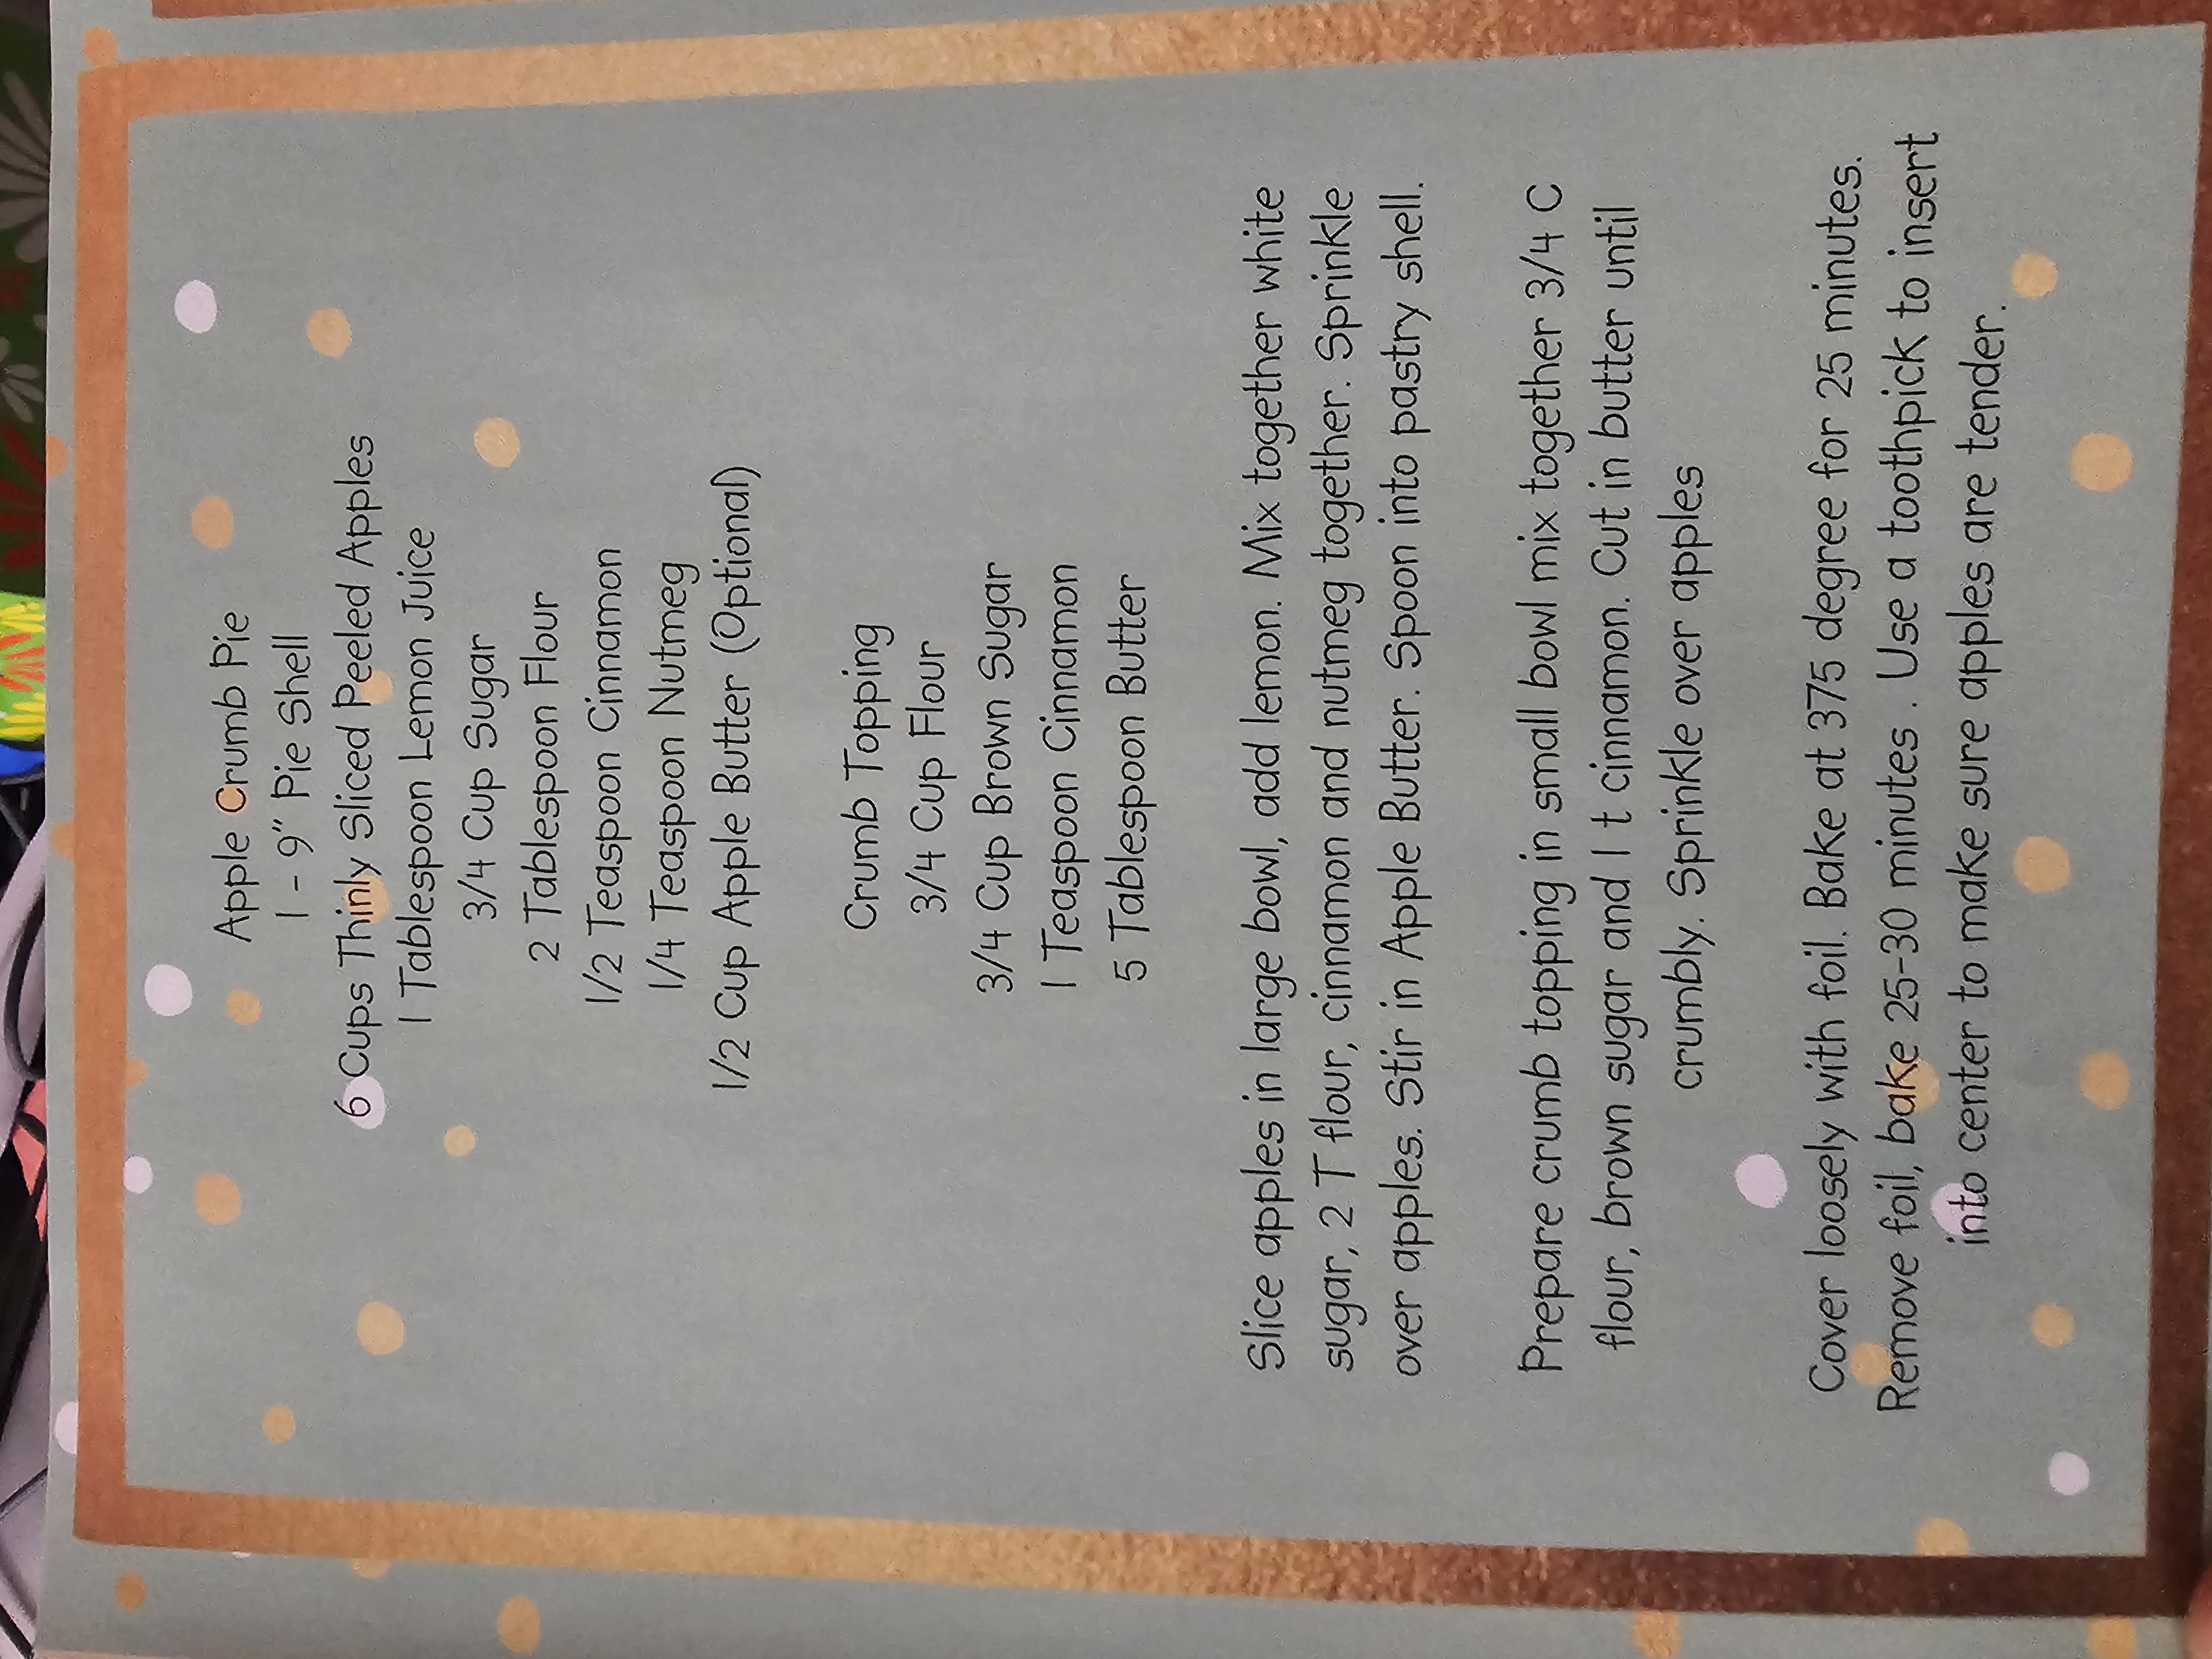 Apple Crumb Pie
1 - 9" Pie Shell
6 Cups Thinly Sliced Peeled Apples
1 Tablespoon Lemon Juice
3/4 Cup Sugar
2 Tablespoon Flour
1/2 Teaspoon Cinnamon
1/4 Teaspoon Nutmeg
1/2 Cup Apple Butter (Optional)
Crumb Topping
3/4 Cup Flour
3/4 Cup Brown Sugar
1 Teaspoon Cinnamon
5 Tablespoon Butter
Slice apples in large bowl, add lemon. Mix together white
sugar, 2 T flour, cinnamon and nutmeg together. Sprinkle
over apples. Stir in Apple Butter. Spoon into pastry shell.
Prepare crumb topping in small bowl mix together 3/4 C
flour, brown sugar and 1 t cinnamon. Cut in butter until
crumbly. Sprinkle over apples
Cover loosely with foil. Bake at 375 degree for 25 minutes.
Remove foil, bake 25-30 minutes . Use a toothpick to insert
into center to make sure apples are tender.